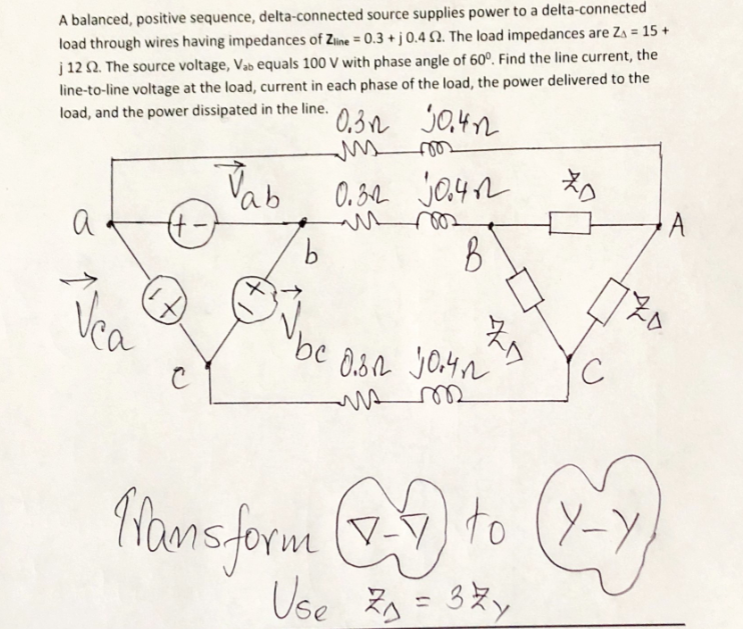 A balanced, positive sequence, delta-connected source supplies power to a delta-connected
load through wires having impedances of Zline = 0.3 + j 0.4 Ω. The load impedances are ZΔ = 15 +
j 12 Ω. The source voltage, Vab equals 100 V with phase angle of 60⁰. Find the line current, the
line-to-line voltage at the load, current in each phase of the load, the power delivered to the
load, and the power dissipated in the line.
0.3Ω j0.4Ω
Vab 0.3Ω j0.4Ω ZΔ
a + - A
b B
Vca - + + - Vbc ZΔ ZΔ
c 0.3Ω j0.4Ω C
Transform ∇-∇ to Y-Y
Use ZΔ = 3ZY